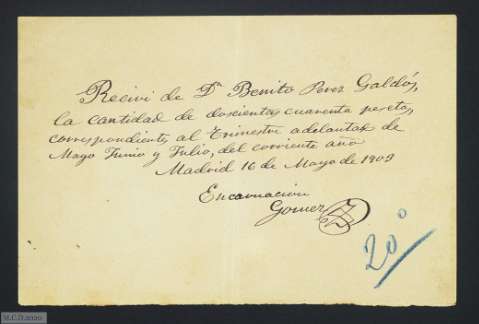 Recivi de Dn Benito Perez Galdós,
la cantidad de doscientas cuarenta pesetas,
correspondiente al Trimestre adelantado de
Mayo Junio y Julio, del corriente año
Madrid 16 de Mayo de 1909
Encarnación
Gomez
20°
M.C.D. 2020